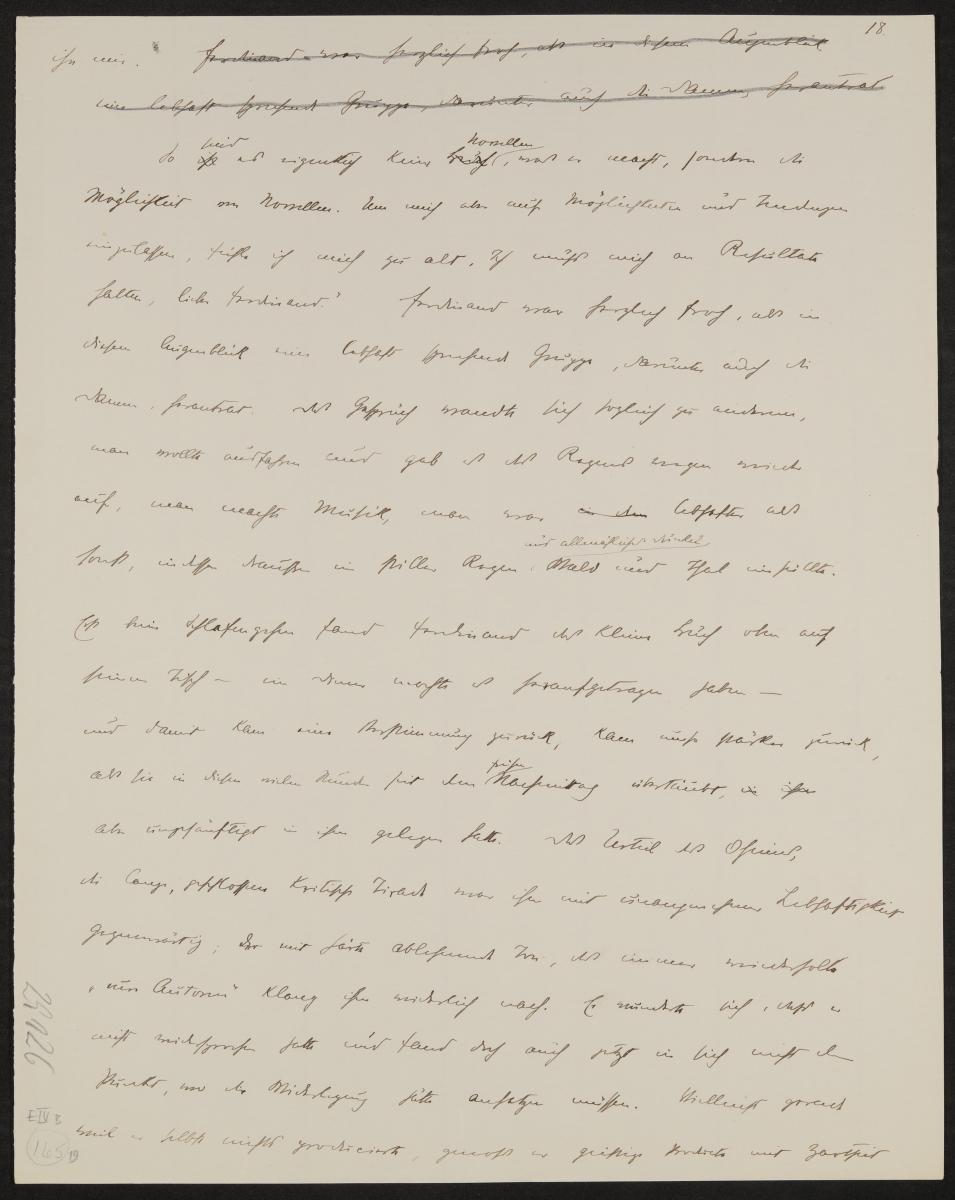 18.
ihn nur. Ferdinand war herzlich froh, als in diesem Augenblick
eine lebhaft sprechende Gruppe, darunter auch die Damen, herantrat
So ist sind es eigentlich keine Buch Novellen, was er macht, sondern die
Möglichkeit von Novellen. Um mich aber auf Möglichkeiten und
eingelassen, fühle ich mich zu alt. Ich muß mich an Resultate
halten, lieber Ferdinand." Ferdinand war herzlich froh, als in
diesem Augenblick eine lebhaft sprechende Gruppe, darunter auch die
Damen, herantrat. Das Gespräch wandte sich sogleich zu anderem,
man wollte ausfahren und gab es des Regens wegen wieder
auf, man machte Musik, man war in den lebhafter als
und allmählicher Dunkel
sonst, indessen draußen ein stiller Regen Wald und Thal einhüllte.
Erst beim Schlafengehen fand Ferdinand das kleine Buch oben auf
seinem Tisch – ein Diener mochte es heraufgetragen haben –
und damit kam eine Verstimmung zurück, kam umso stärker zurück,
als sie in diesen vielen Stunden seit dem frühen Nachmittag übertäubt, in ihm
aber unbesänftigt in ihm gelegen hatte. Das Urteil des Oheims,
die lange, geschlossene kritische Tirade war ihm mit unangenehmer Lebhaftigkeit
gegenwärtig; der mit Härte ablehnende Ton, das immer wiederholte
„Ihr Autor" klang ihm widerlich nach. Er wunderte sich, daß er
nicht widersprochen hatte und fand doch auch jetzt in sich nicht den
Punkt, wo die Widerlegung hätte ansetzen müssen. Vielleicht gerade
weil er selbst nichts producierte, genoß er geistige Producte mit Zartheit
25026
E IV B
163
19